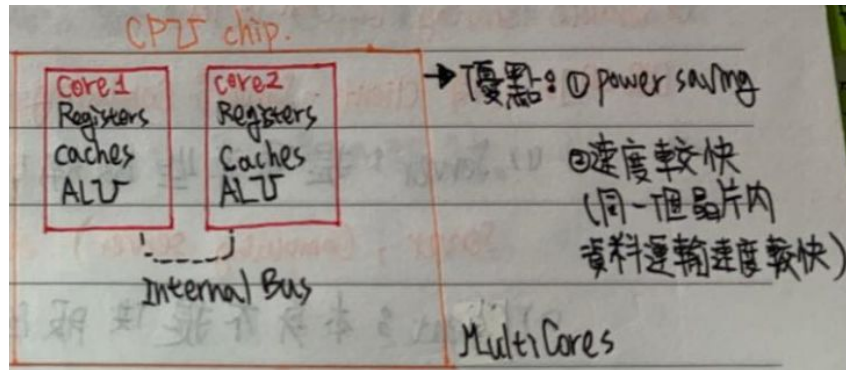 CPU chip.
core1
Registers
caches
ALU
core2
Registers
Caches
ALU
Internal Bus
→優點:① power saving
②速度較快
(同一個晶片內
資料運輸速度較快)
MultiCores